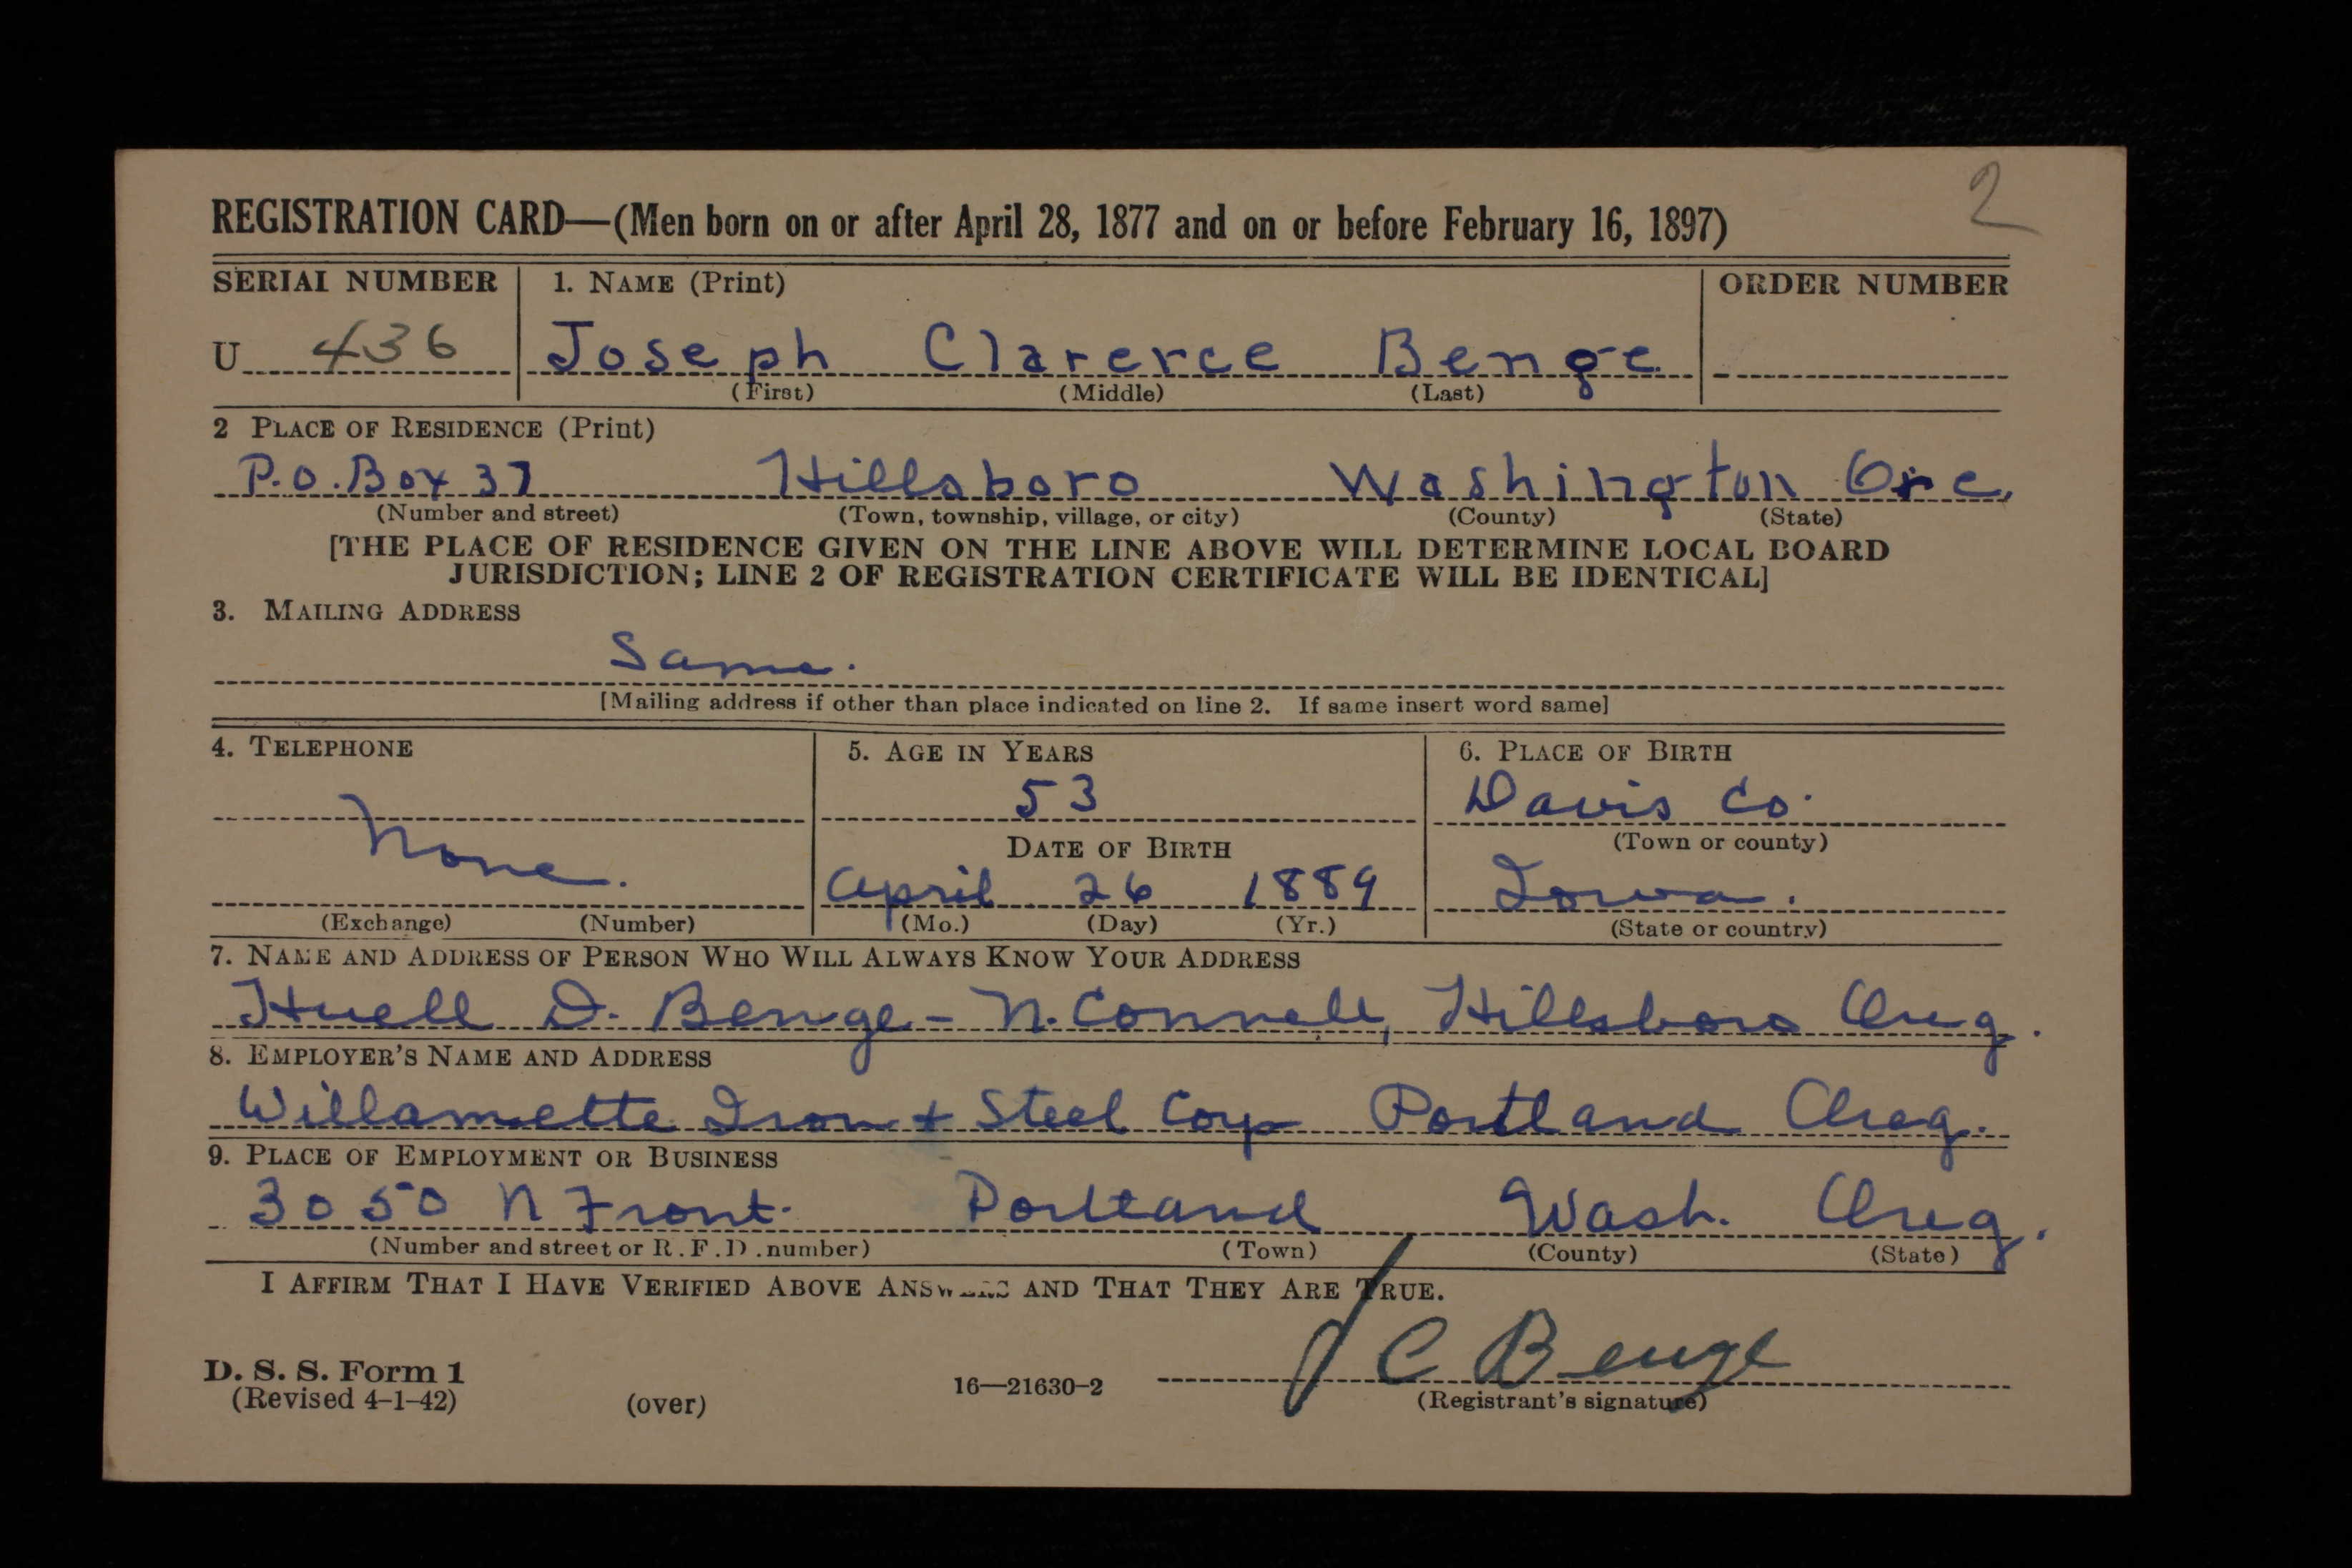 2
REGISTRATION CARD—(Men born on or after April 28, 1877 and on or before February 16, 1897)
SERIAL NUMBER 1. NAME (Print) ORDER NUMBER
U 436 Joseph Clarence Benge
(First) (Middle) (Last)
2 PLACE OF RESIDENCE (Print)
P.O. Box 37 Hillsboro Washington Ore.
(Number and street) (Town, township, village, or city) (County) (State)
[THE PLACE OF RESIDENCE GIVEN ON THE LINE ABOVE WILL DETERMINE LOCAL BOARD
JURISDICTION; LINE 2 OF REGISTRATION CERTIFICATE WILL BE IDENTICAL]
3. MAILING ADDRESS
Same.
[Mailing address if other than place indicated on line 2. If same insert word same]
4. TELEPHONE 5. AGE IN YEARS 6. PLACE OF BIRTH
53 Davis Co.
(Town or county)
None. DATE OF BIRTH
April 26 1889 Iowa.
(Exchange) (Number) (Mo.) (Day) (Yr.) (State or country)
7. NAME AND ADDRESS OF PERSON WHO WILL ALWAYS KNOW YOUR ADDRESS
Huell D. Benge - N. Connell, Hillsboro Oreg.
8. EMPLOYER'S NAME AND ADDRESS
Willamette Iron + Steel Corp Portland Oreg.
9. PLACE OF EMPLOYMENT OR BUSINESS
3050 N Front. Portland Wash. Oreg.
(Number and street or R. F. D. number) (Town) (County) (State)
I AFFIRM THAT I HAVE VERIFIED ABOVE ANSWERS AND THAT THEY ARE TRUE.
J C Benge
D. S. S. Form 1
(Revised 4-1-42) (over) 16—21630-2 (Registrant's signature)